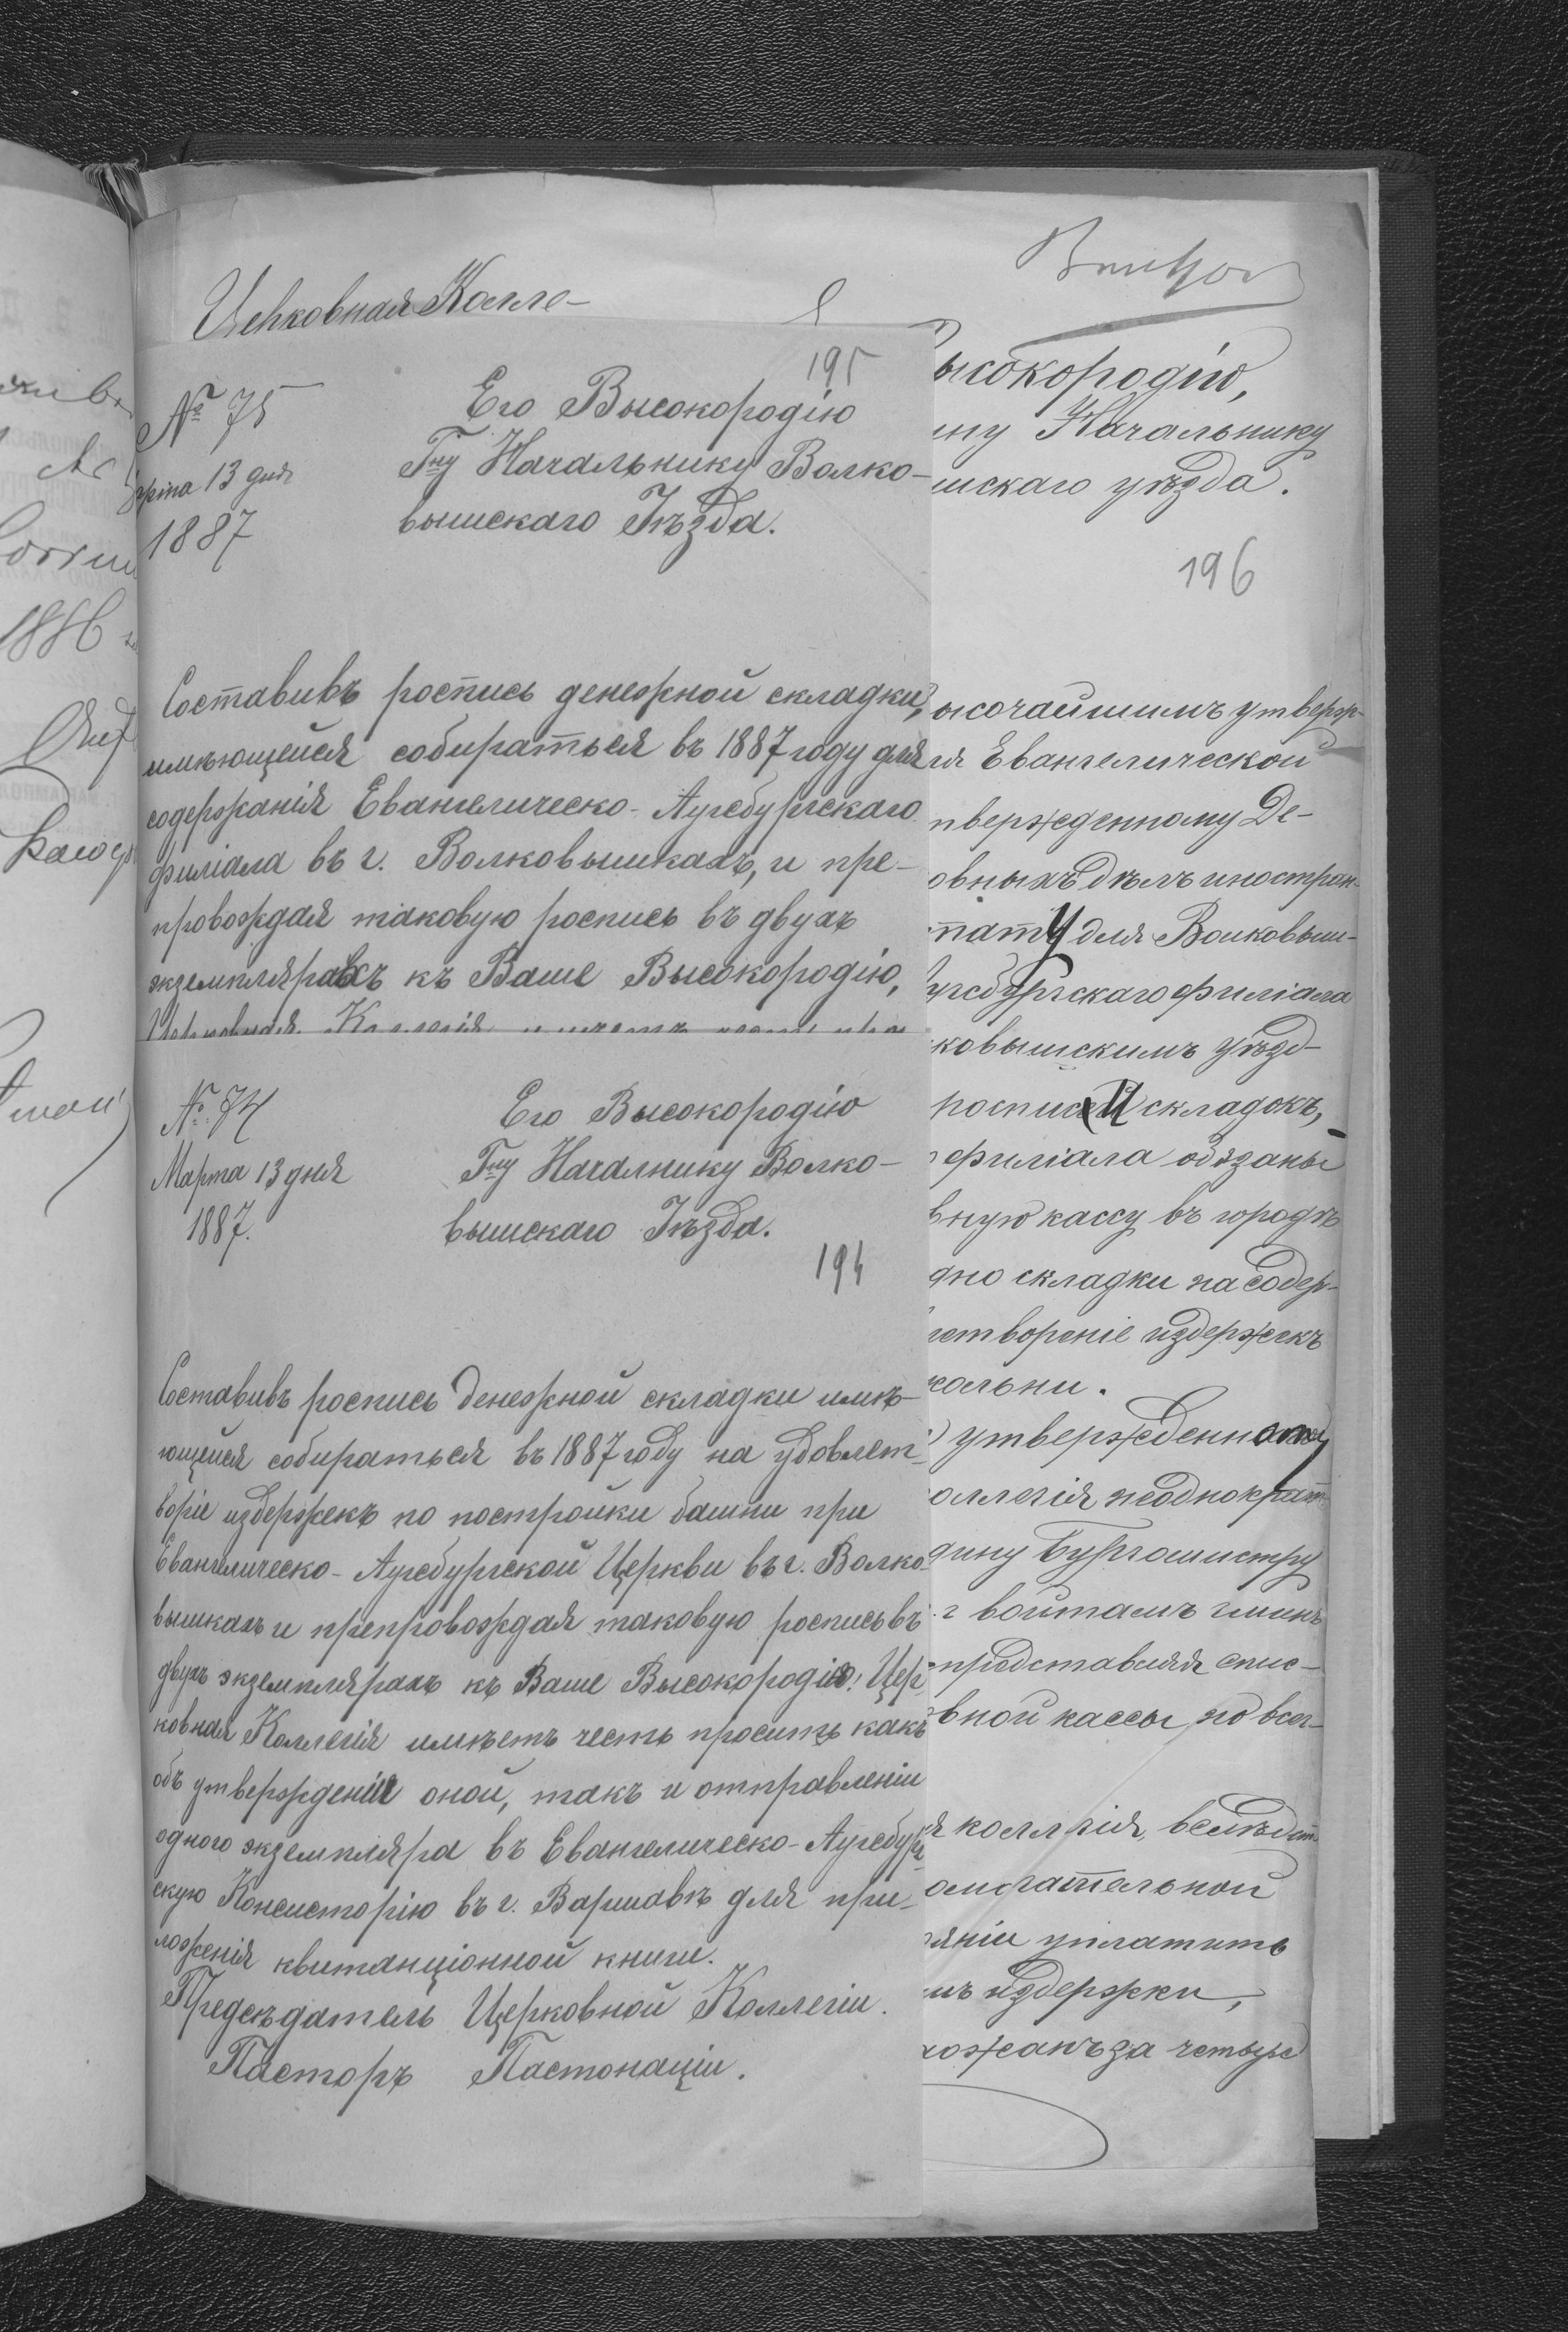 Церковная Колле-
195
№ 75
Марта 13 дня
1887
Его Высокородію
Гну Начальнику Волко-
вышскаго Уѣзда.
Составивъ роспись денежной складки,
имѣющейся собираться въ 1887 году для
содержанія Евангелическо-Аугсбургскаго
филіала въ г. Волковышкахъ, и пре-
провождая таковую роспись въ двухъ
экземплярахъ къ Ваше Высокородію,
Церковная Коллегія имѣетъ честь про
№ 74
Марта 13 дня
1887.
Его Высокородію
Гну Началнику Волко-
вышскаго Уѣзда.
194
Составивъ роспись денежной складки имѣ-
ющейся собираться въ 1887 году на удовлет-
воріе издержекъ по постройки башни при
Евангелическо-Аугсбургской Церкви въ г. Волко-
вышкахъ и препровождая таковую роспись въ
двухъ экземплярахъ къ Ваше Высокородію, Цер-
ковная Коллегія имѣетъ честь просить какъ
объ утвержденіи оной, такъ и отправленіи
одного экземпляра въ Евангелическо-Аугсбург-
скую Консисторію въ г. Варшавѣ для при-
ложенія квитанціонной книги.
Предсѣдатель Церковной Коллегіи.
Пасторъ Пастонаціи.
ысокородію,
ину Начальнику
шскаго уѣзда.
196
ысочайшимъ утверж-
ія Евангелической
твержденному Де-
овныхъ дѣлъ иностран-
тату для Волковыш-
угсбургскаго филіала
ковышскимъ уѣзд-
росписей складокъ,
филіала обязаны
вную кассу въ городѣ
дно складки на содер-
летвореніе издержекъ
кольни.
утвержденному
оллегія неоднократ
дину Бургомистру
и войтамъ гминъ
представляя спис-
вной кассы, по всег-
я коллегія, вслѣдст
омгательной
яніи уплатить
мъ издержки,
хожанъ за четыре